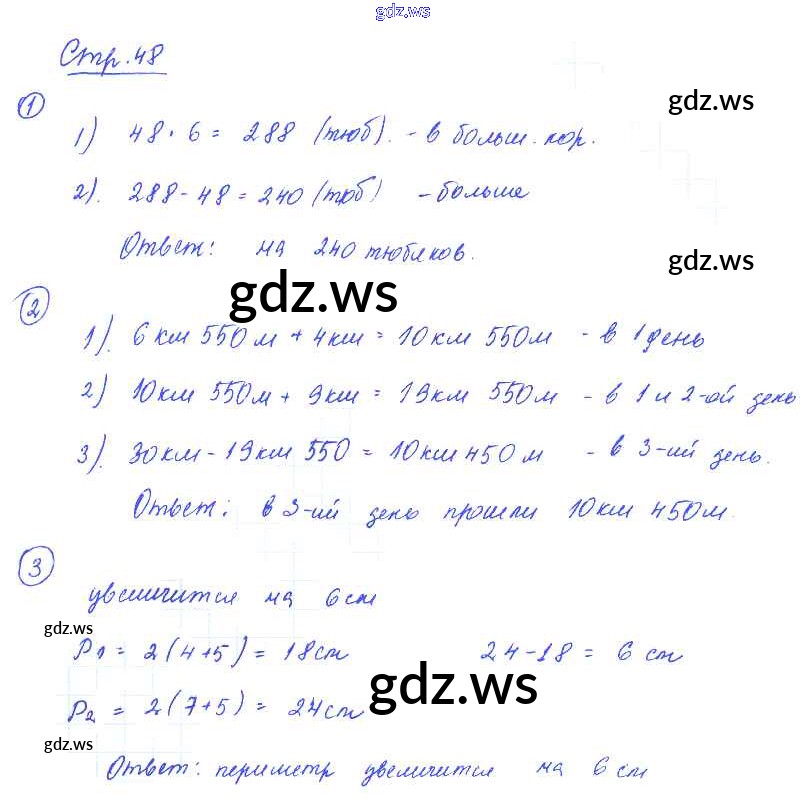 gdz.ws
Стр. 48
gdz.ws
1
1) 48 · 6 = 288 (тюб). - в больш. кор.
2). 288 - 48 = 240 (тюб) - больше
Ответ: на 240 тюбиков.
gdz.ws
gdz.ws
2
1). 6 км 550 м + 4 км = 10 км 550 м - в 1 день
2) 10 км 550 м + 9 км = 19 км 550 м - в 1 и 2-ой день
3). 30 км - 19 км 550 = 10 км 450 м - в 3-ий день.
Ответ: в 3-ий день прошли 10 км 450 м.
3
увеличится на 6 см
gdz.ws
P1 = 2(4+5) = 18 см 24-18 = 6 см
gdz.ws
P2 = 2(7+5) = 24 см
gdz.ws
Ответ: периметр увеличится на 6 см